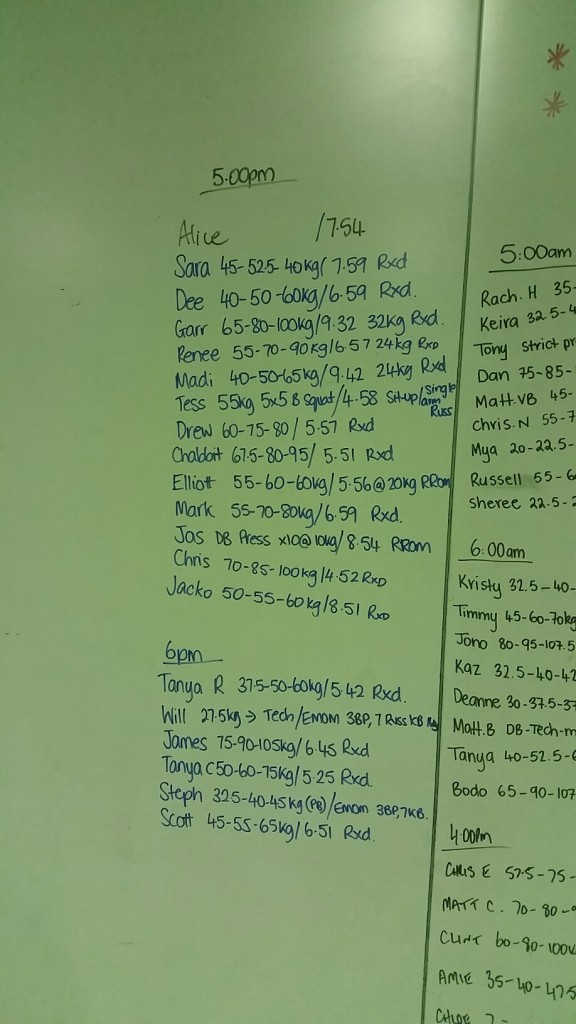 5.00pm
Alice /7.54
Sara 45-52.5-40kg/ 7.59 Rxd
Dee 40-50-60kg/6.59 Rxd.
Garr 65-80-100kg/9.32 32kg Rxd.
Renee 55-70-90kg/6.57 24kg RxD
Madi 40-50-65kg/9.42 24kg Rxd
Tess 55kg 5x5 B Squat/4.58 Sit-up/single arm Russ
Drew 60-75-80/ 5.57 Rxd
67.5-80-95/ 5.51 Rxd
Elliott 55-60-60kg/5.56@20kg RRom
Mark 55-70-80kg/6.59 Rxd.
Jas DB Press x10@10kg/8.54 RRom
Chris 70-85-100kg/4.52 RxD
Jacko 50-55-60kg/8.51 RxD
6pm
Tanya R 37.5-50-60kg/5.42 Rxd.
Will 27.5kg → Tech/EMOM 3BP, 7 Russ KB
James 75-90-105kg/6.45 Rxd
Tanya C 50-60-75kg/5.25 Rxd.
Steph 32.5-40-45kg (PB)/Emom 3BP, 7KB.
Scott 45-55-65kg/6.51 Rxd.
5:00am
Rach. H 35-
Keira 32.5-4
Tony strict pr
Dan 75-85-
Matt.VB 45-
Chris.N 55-7
Mya 20-22.5-
Russell 55-6
Sheree 22.5-2
6:00am
Kristy 32.5-40-
Timmy 45-60-70kg
Jono 80-95-107.5
Kaz 32.5-40-42
Deanne 30-37.5-37
Matt.B DB-Tech-m
Tanya 40-52.5-6
Bodo 65-90-107
4:00pm
CHRIS E 57.5-75-
MATT C. 70-80-
CLINT 60-80-100k
AMIE 35-40-47.5
CHLOE